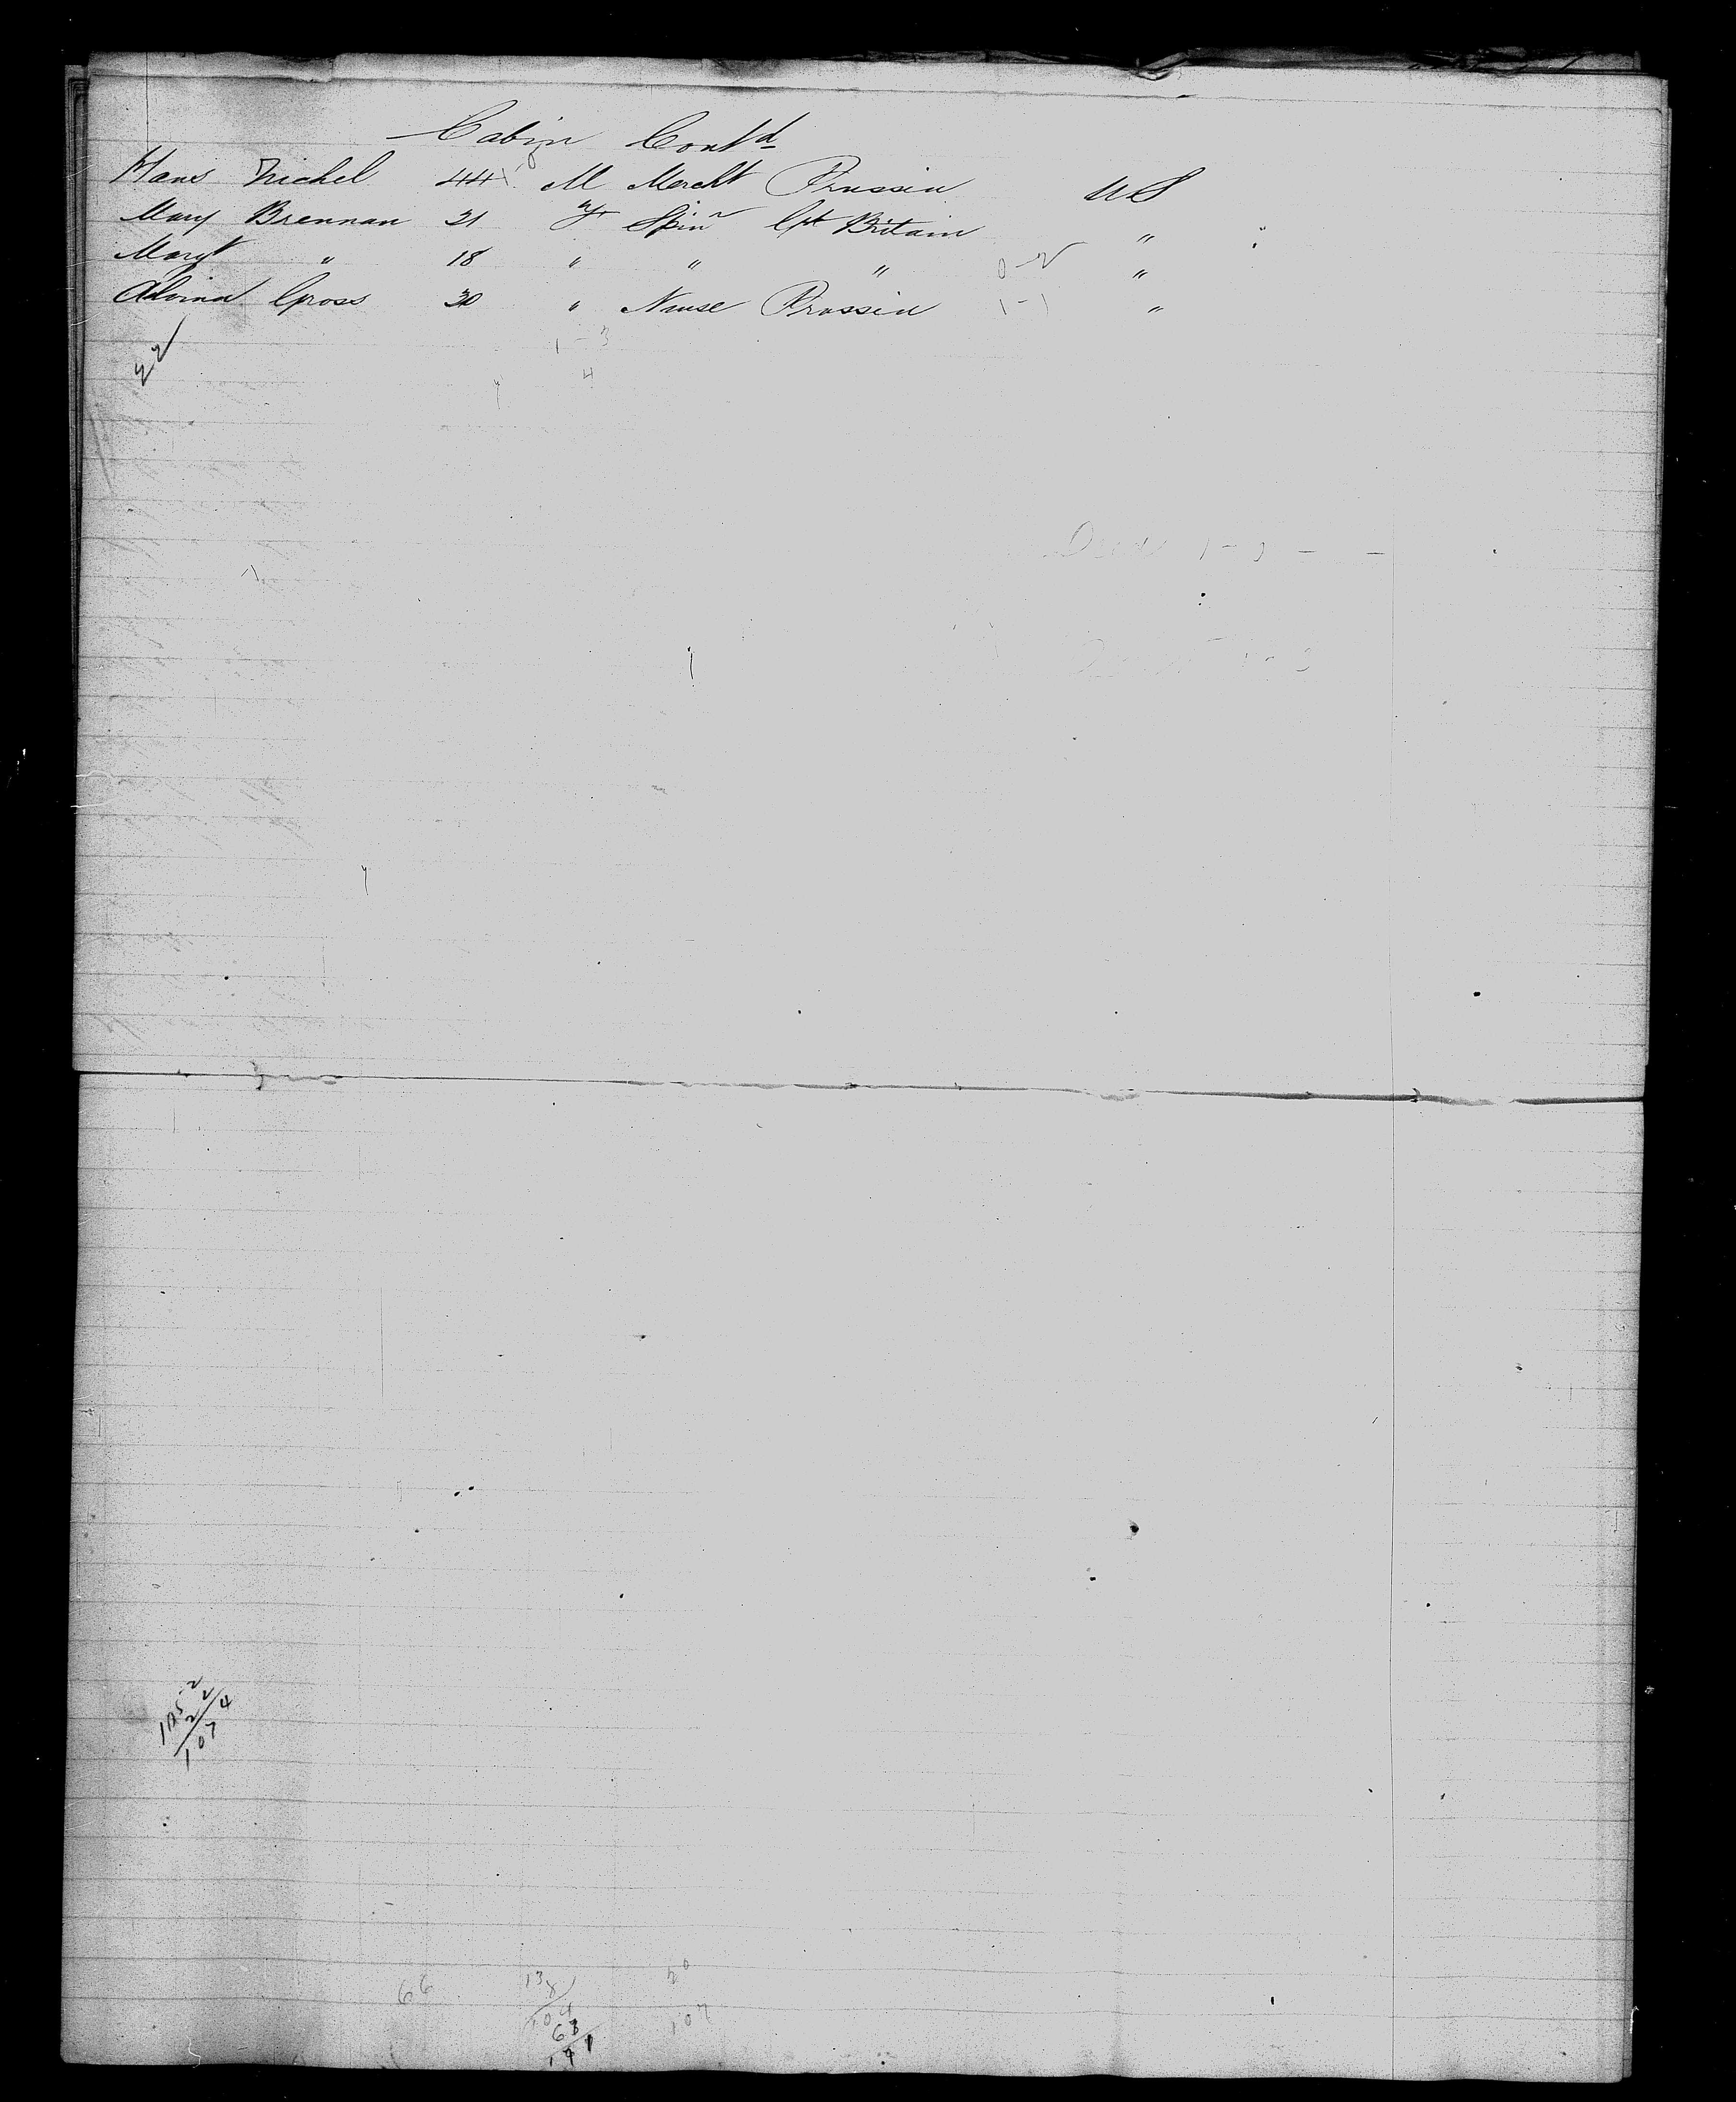 Cabin Contd
Hans Nickel 44 M Mercht Prussia US
Mary Brennan 21 F Spinr Gt Britain "
Margt " 18 " " " 0-2 "
Alvina Gross 30 " Nurse Prussia 1-1 "
22
1-3
4
1052
22
1074
66 138 20
104 107